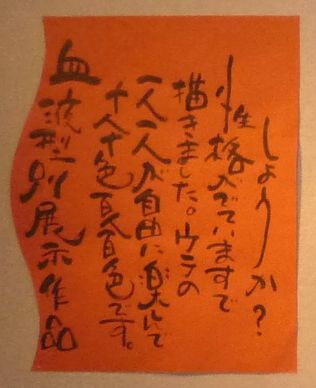 血液型別展示作品
十人十色百人百色です。
一人一人が自由に楽しんで
描きました。ウラの
性格がでていますで
しょうか？